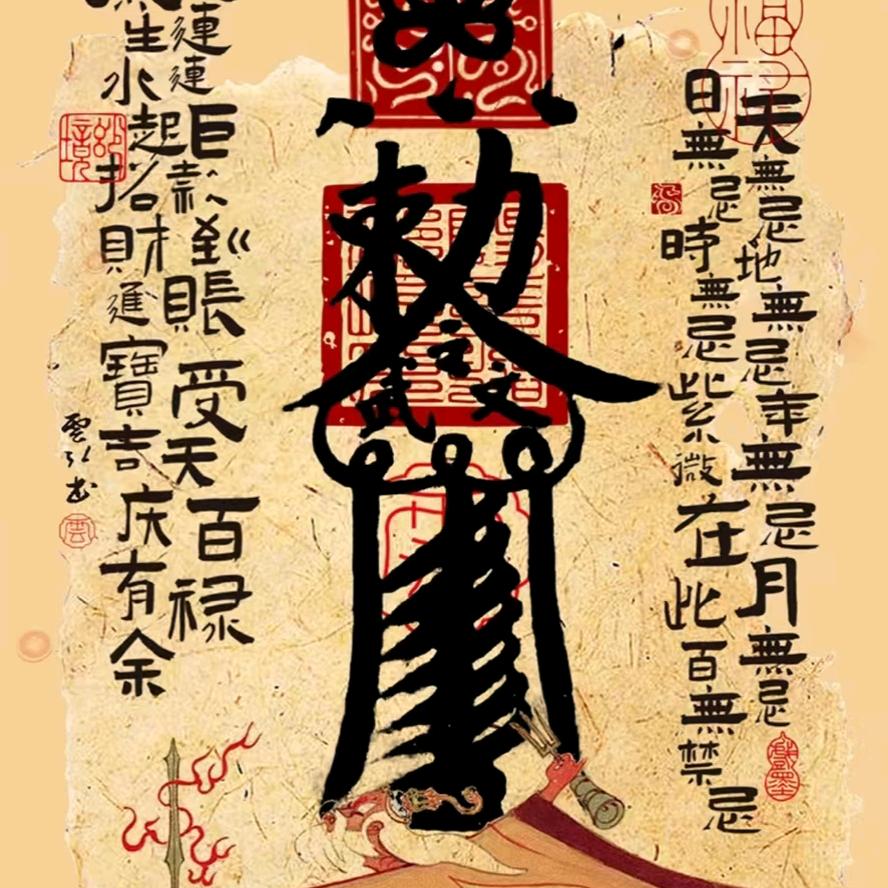 天無忌地無忌年無忌月無忌
日無忌時無忌紫微在此百無禁忌
勅
文
武
連連巨款到賬受天百禄
生水起招財進寶吉庆有余